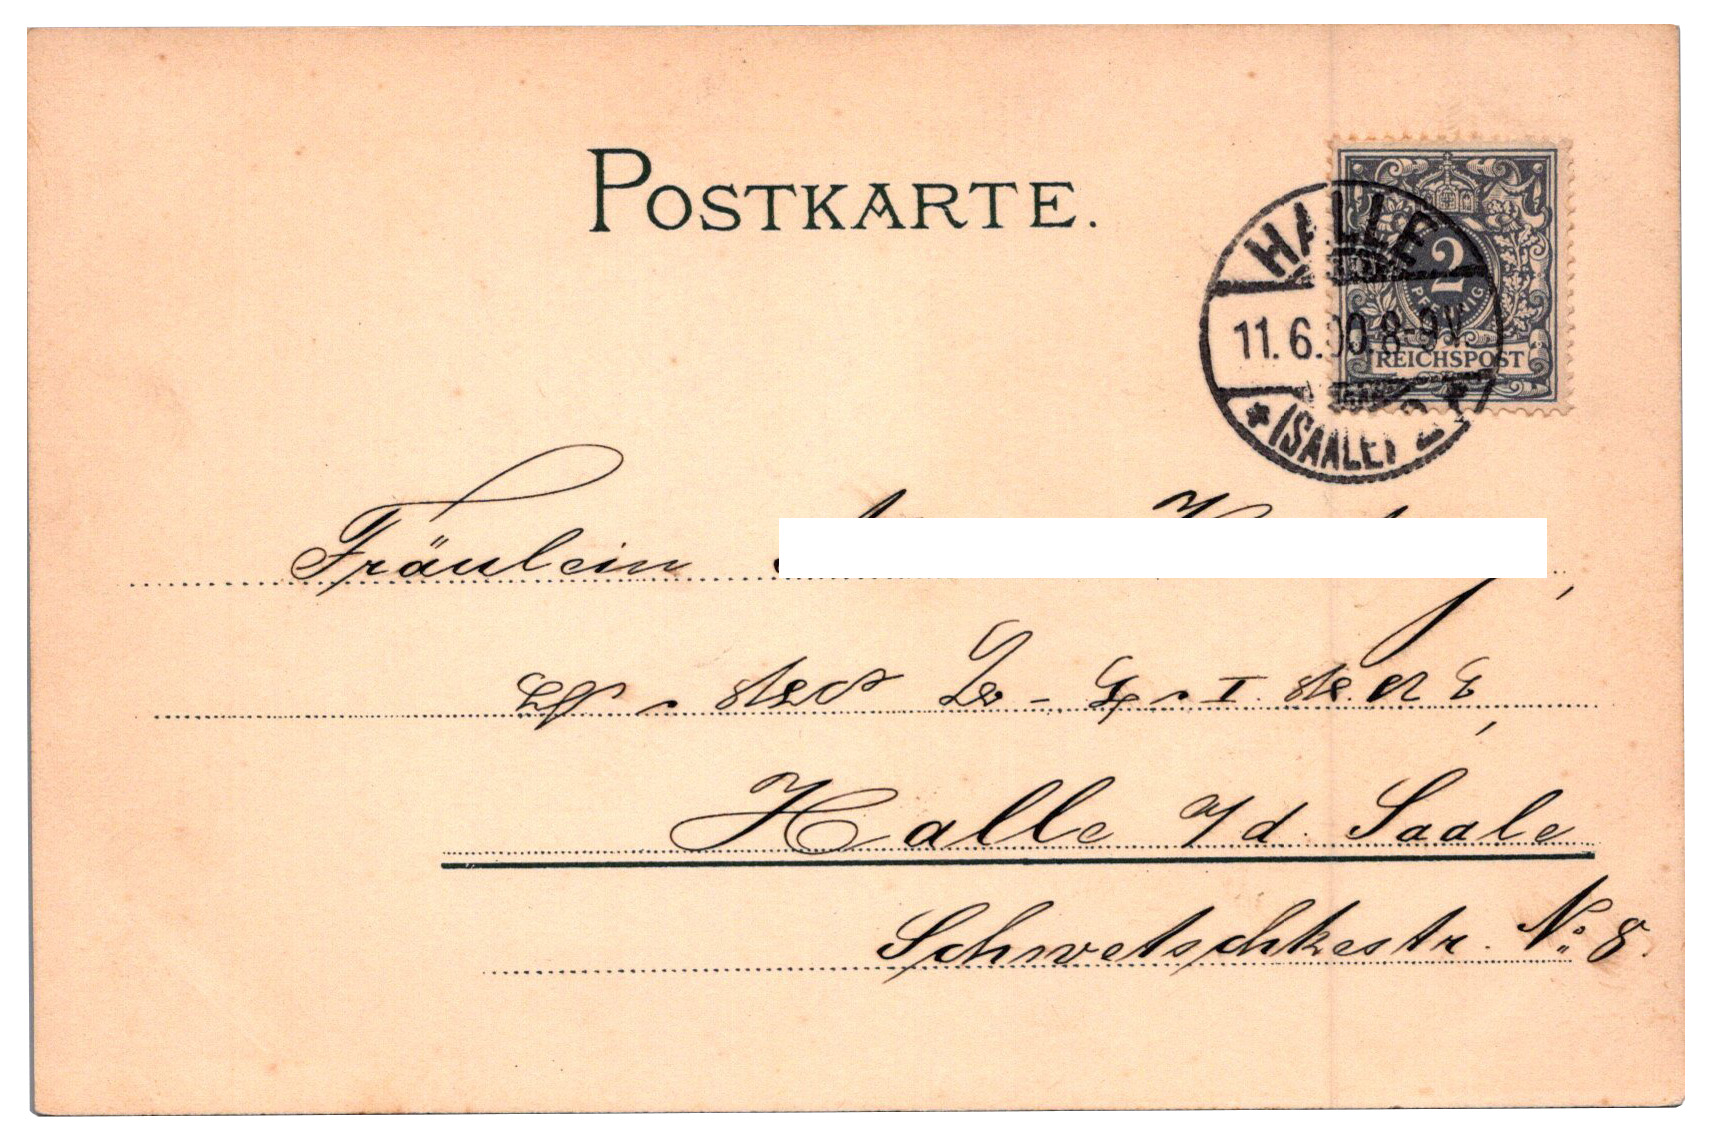 POSTKARTE.
HALLE
2
PFENNIG
11.6.00.8-9V.
REICHSPOST
* (SAALE) 2 *
Fräulein
Halle a/d. Saale
Schwetschkestr. No 8.